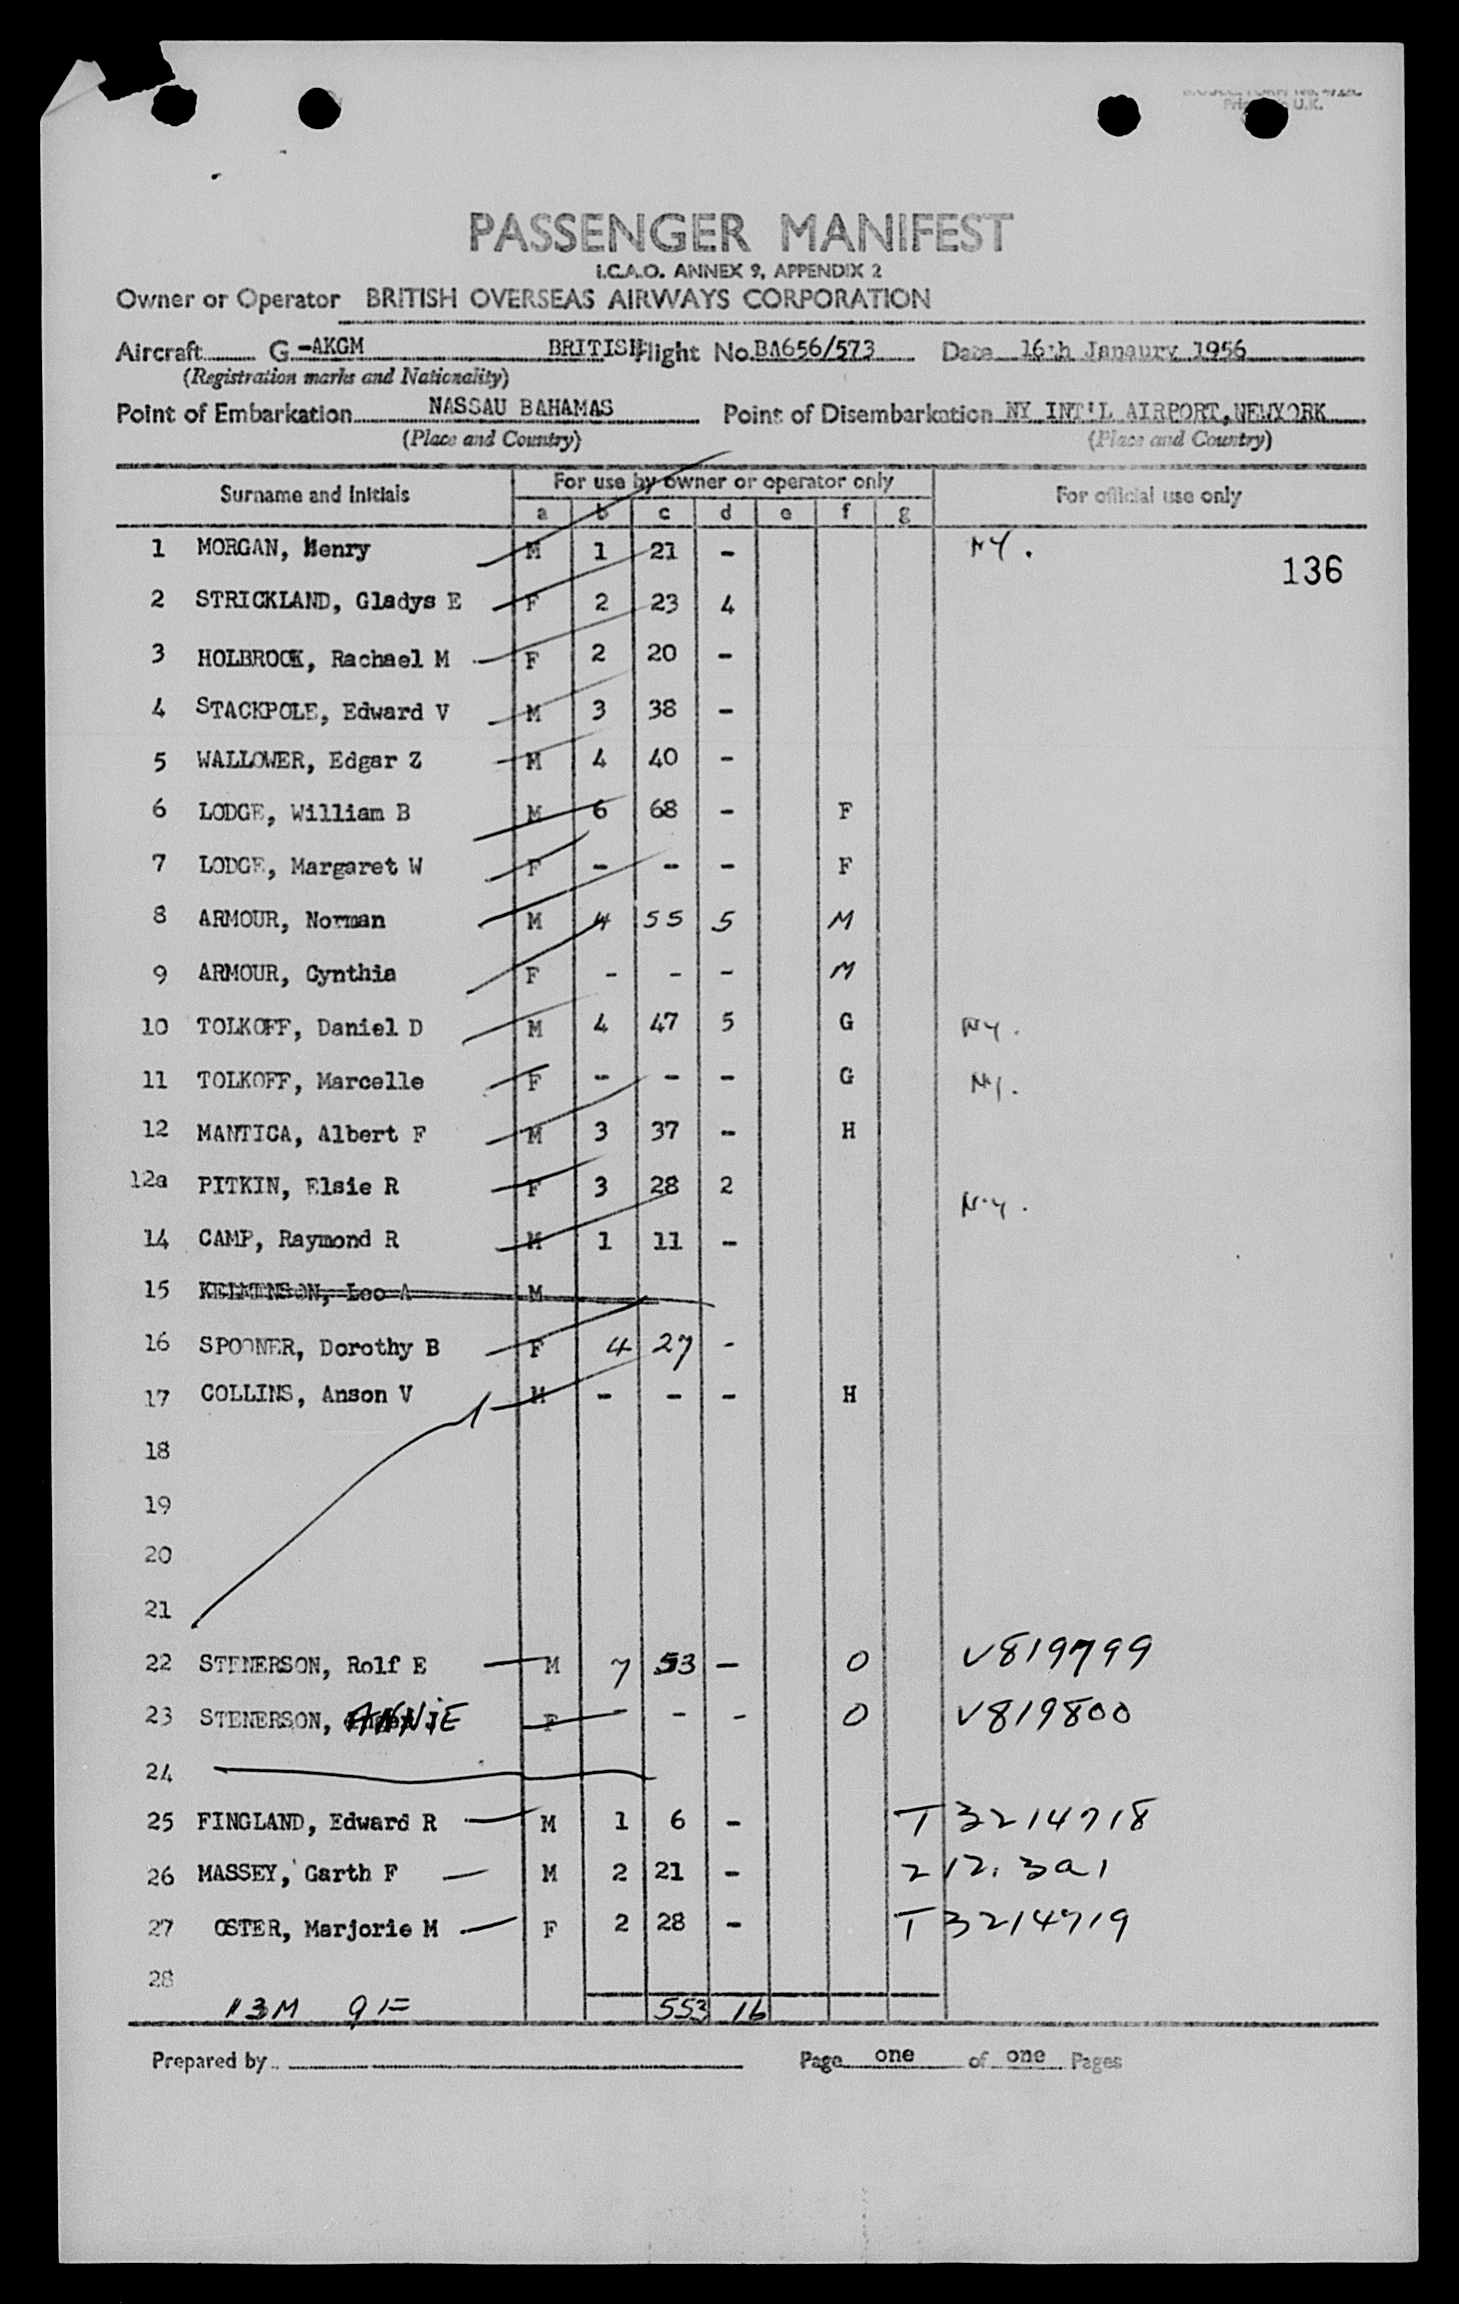 Printed in U.K.
PASSENGER MANIFEST
I.C.A.O. ANNEX 9, APPENDIX 2
Owner or Operator BRITISH OVERSEAS AIRWAYS CORPORATION
Aircraft G -AKGM BRITISH Flight No. BA656/573 Date 16th Janaury 1956
(Registration marks and Nationality)
Point of Embarkation NASSAU BAHAMAS Point of Disembarkation NY INT'L AIRPORT, NEWYORK
(Place and Country) (Place and Country)
Surname and Initials For use by owner or operator only For official use only
a b c d e f g
1 MORGAN, Henry M 1 21 - NY.
136
2 STRICKLAND, Gladys E F 2 23 4
3 HOLBROOK, Rachael M F 2 20 -
4 STACKPOLE, Edward V M 3 38 -
5 WALLOWER, Edgar Z M 4 40 -
6 LODGE, William B M 6 68 - F
7 LODGE, Margaret W F - - - F
8 ARMOUR, Norman M 4 55 5 M
9 ARMOUR, Cynthia F - - - M
10 TOLKOFF, Daniel D M 4 47 5 G NY.
11 TOLKOFF, Marcelle F - - - G NY.
12 MANTICA, Albert F M 3 37 - H
12a PITKIN, Elsie R F 3 28 2 N.Y.
14 CAMP, Raymond R M 1 11 -
15 Leo A M
16 SPOONER, Dorothy B F 4 27 -
17 COLLINS, Anson V M - - - H
18
19
20
21
22 STENERSON, Rolf E M 7 53 - O V819799
23 STENERSON, ANNIE F - - - O V819800
24
25 FINGLAND, Edward R M 1 6 - T3214718
26 MASSEY, Garth F M 2 21 - 212.3a1
27 OSTER, Marjorie M F 2 28 - T3214719
28
13M 9F 553 16
Prepared by Page one of one Pages